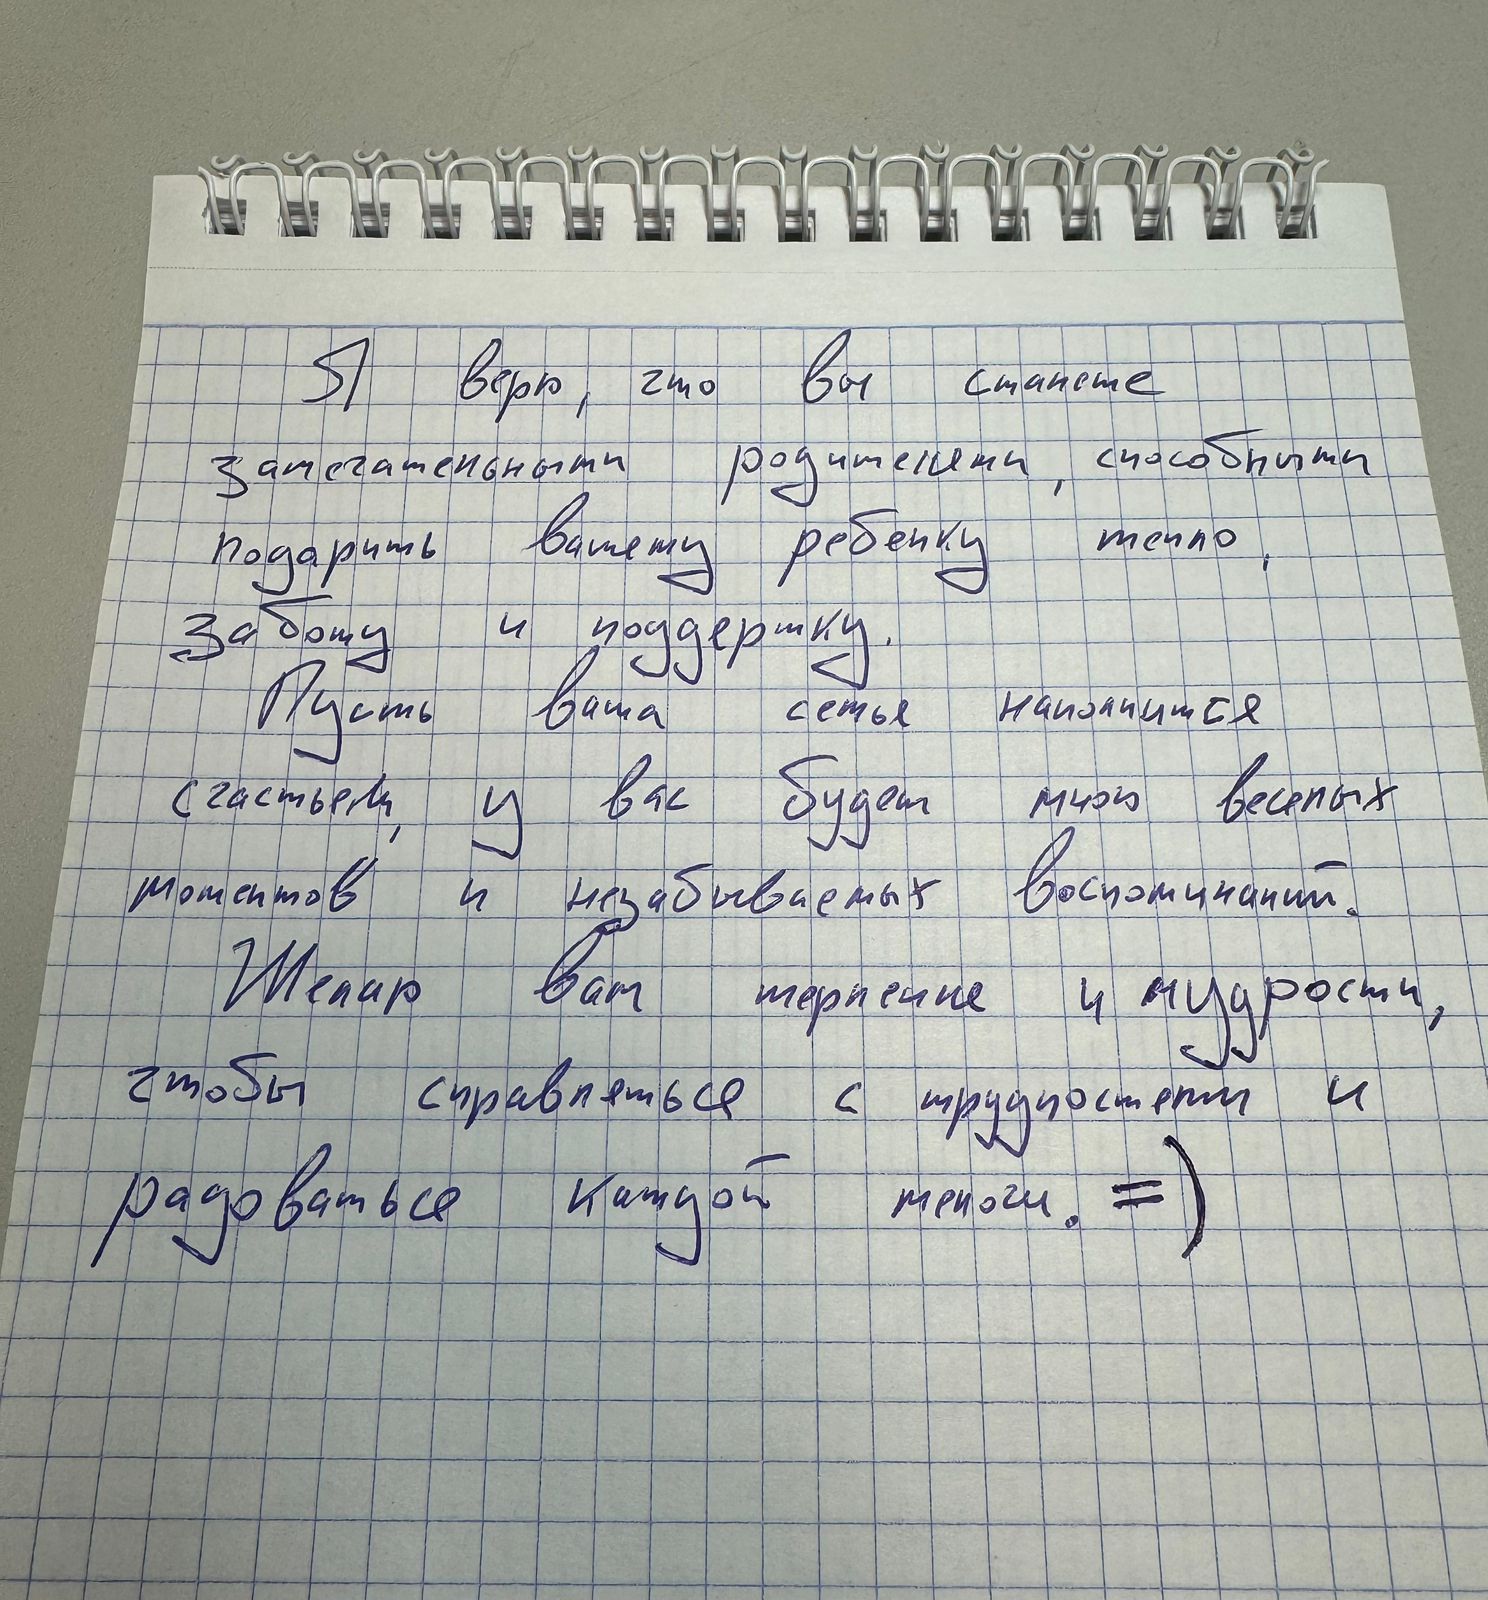 Я верю, что вы станете
замечательными родителями, способными
подарить вашему ребенку тепло,
заботу и поддержку.
Пусть ваша семья наполнится
счастьем, у вас будет много веселых
моментов и незабываемых воспоминаний.
Желаю вам терпение и мудрости,
чтобы справляться с трудностями и
радоваться каждой мелочи. =)